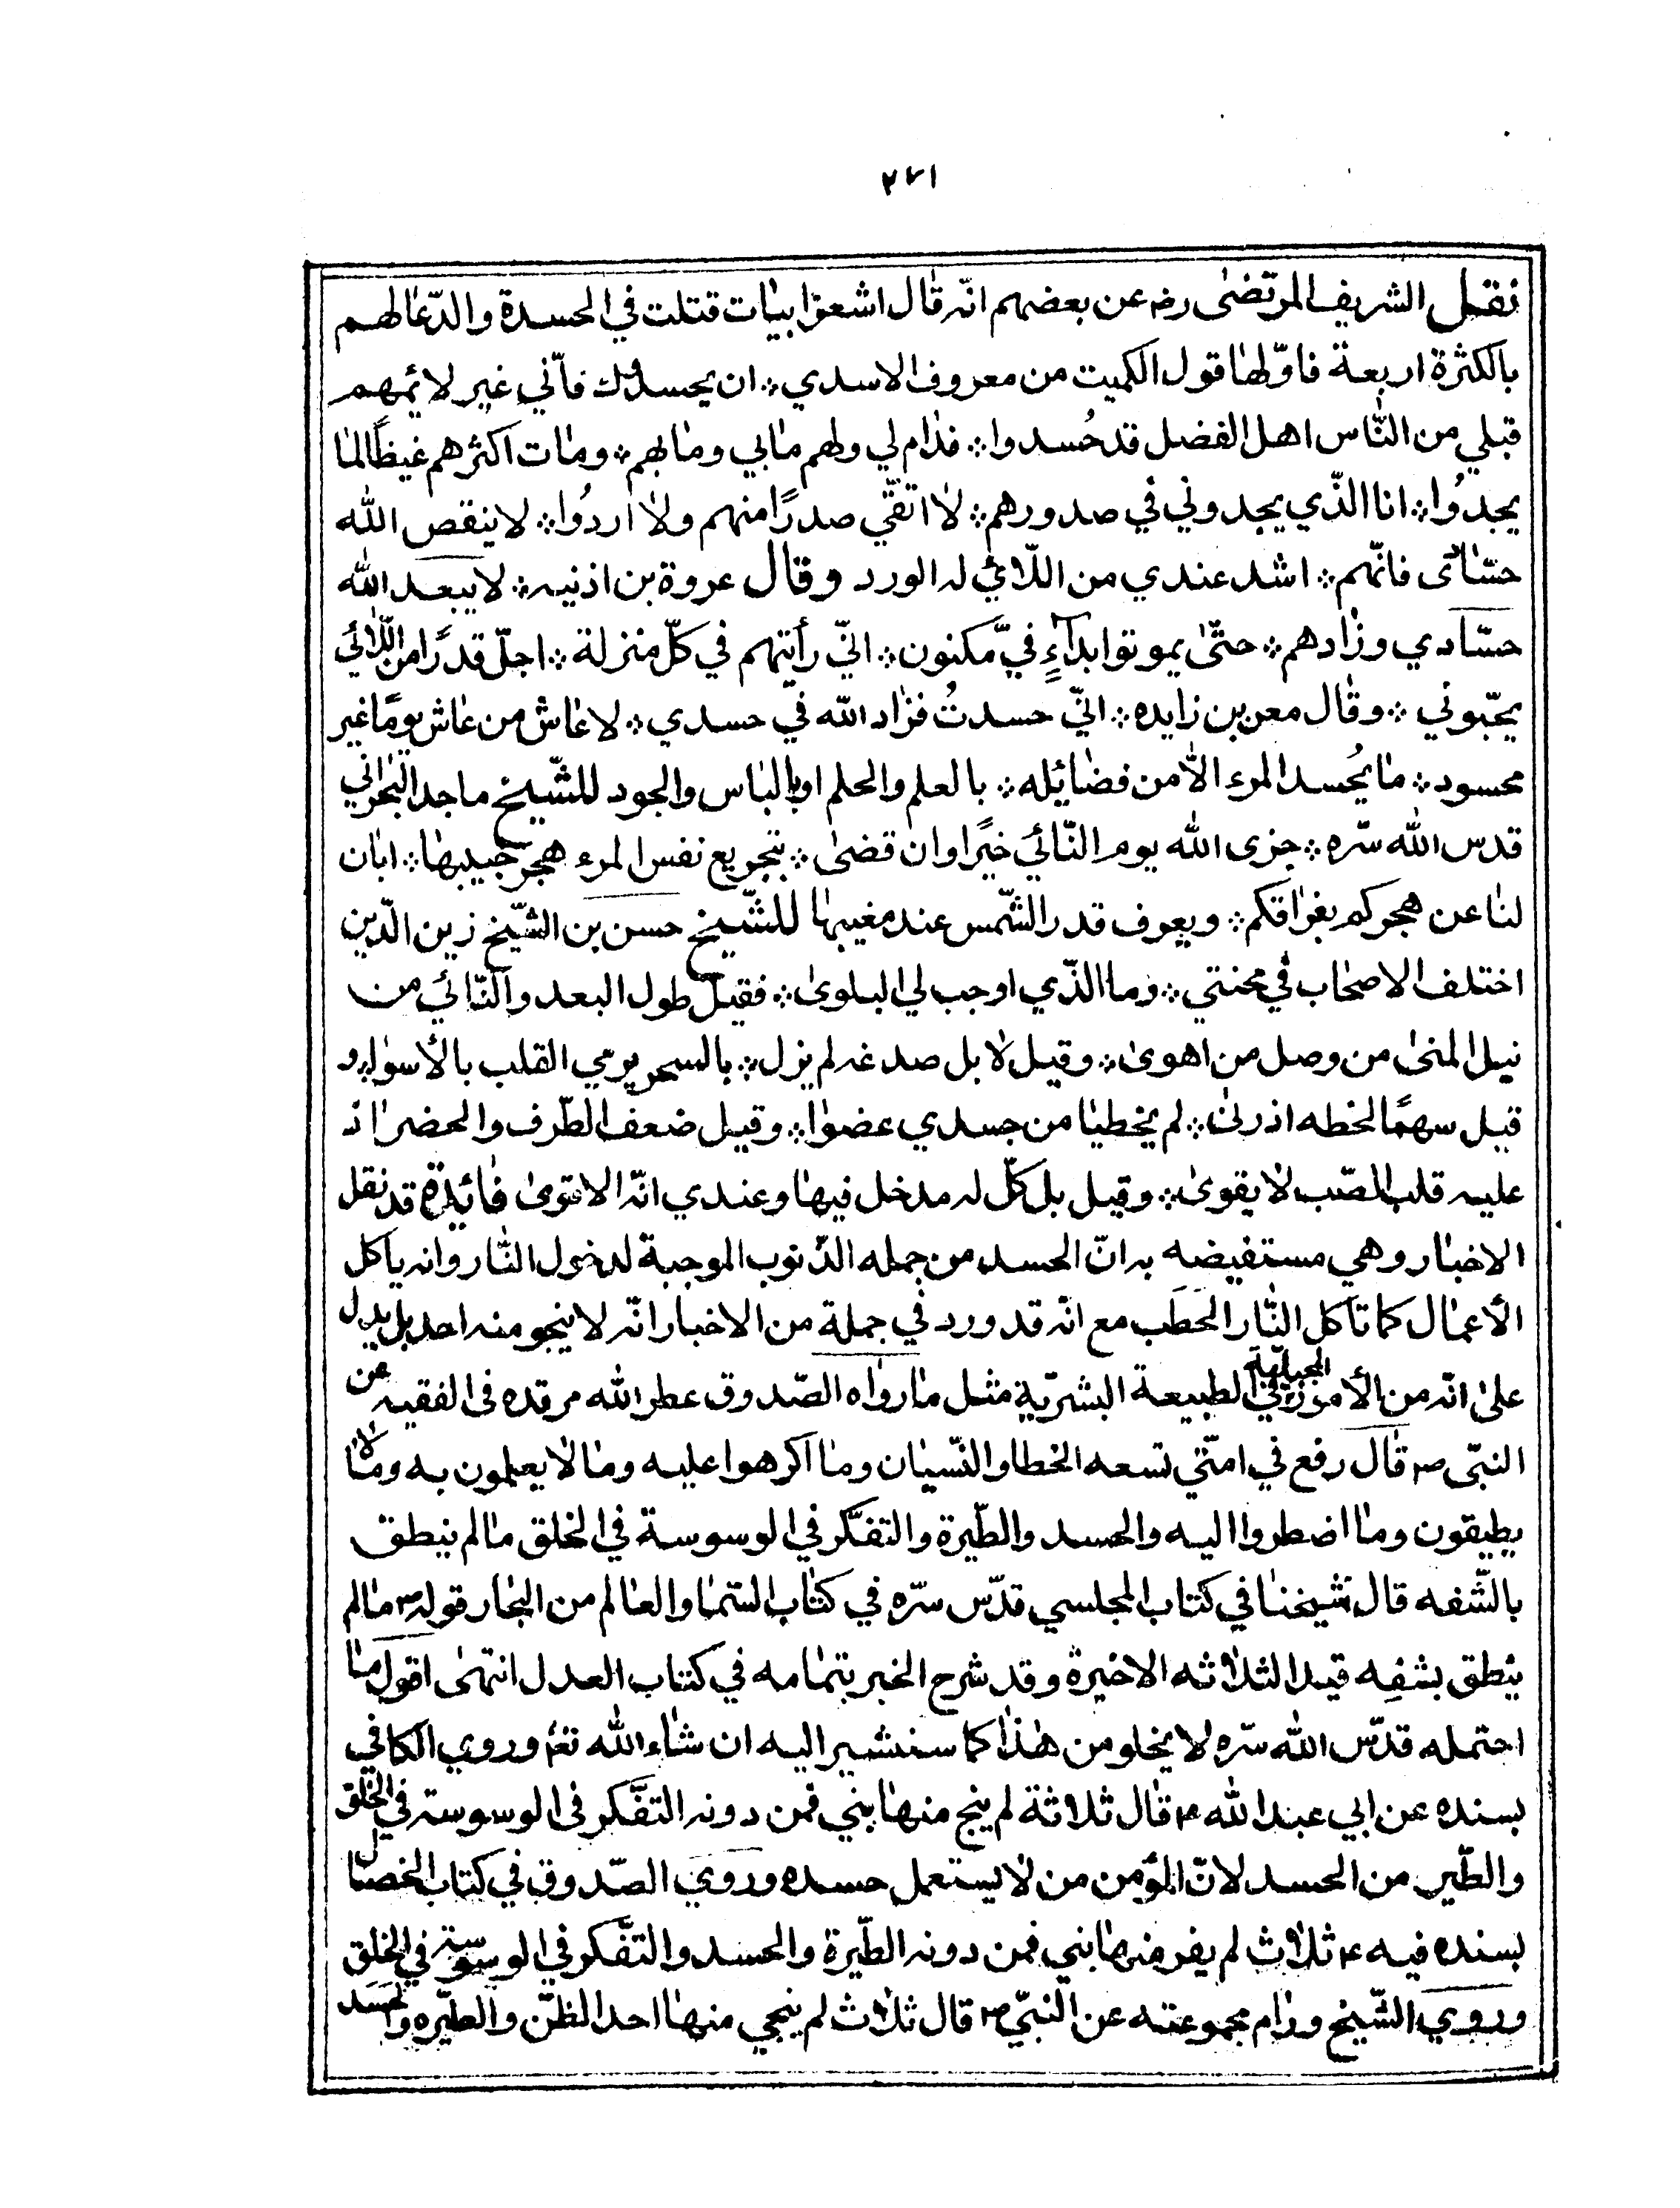 ٢٧١
نقل الشريف المرتضىٰ رضہ عن بعضهم انّہ قٰال اشعر ابيٰات قتلت في الحسدة والدّعٰا لهم
بالكثرة اربعة فاوّلهٰا قول الكميت من معروف الاسدي ؞ ان يحسدونك فانّي غير لائمهم
قبلي من النّٰاس اهل الفضل قد حُسدوا ؞ فدٰام لي ولهم مٰا بي ومٰا بهم ؞ ومٰات اكثرهم غيظًا لمٰا
يجدُوا ؞ انا الذّي يجدوني في صدورهم ؞ لٰا اتقّي صدرًا منهم ولٰا اردُوا ؞ لا ينقص اللّٰه
حسّٰادى فانّهم ؞ اشد عندي من اللّائي لہ الورد وقال عروة بن اذنيہ ؞ لا يبعد اللّٰه
حسّٰادي وزٰادهم ؞ حتّىٰ يموتوا بدآءٍ فيّ مكنون ؞ انيّ رأيتهم في كلّ منزلة ؞ اجلّ قدرًا من اللّائي
يحبّوني ؞ وقٰال معن بن زايده ؞ انيّ حسدتُ فزٰاد اللّه في حسدي ؞ لا عٰاش من عٰاش يومًا غير
محسود ؞ مٰا يُحسد المرء الّا من فضٰائيله ؞ بالعلم والحلم او بالبٰاس والجود للشّيخ ماجد البحراني
قدس اللّٰه سّره ؞ جزى اللّٰه يوم النّائي خيرًا وان قضىٰ ؞ بتجريع نفس المرء هجر حبيبهٰا ؞ ابٰان
لنٰا عن هجركم بفرٰاقكم ؞ ويعرف قدر الشّمس عند مغيبهٰا للشّيخ حسن بن الشّيخ زين الدّين
اختلف الاصحٰاب في محنتي ؞ وما الذّي اوجب لي البلوىٰ ؞ فقيل طول البعد والنّٰائي من
نيل المنىٰ من وصل من اهوىٰ ؞ وقيل لٰا بل صدغہ لم يزل ؞ بالسحر يرمي القلب بالأسوٰا و
قيل سهمًا لخطه اذرنىٰ ؞ لم يخطيٰا من جسدي عضوٰا ؞ وقيل ضعف الطّرف والحضر اذ
عليہ قلب الصّب لا يقوىٰ ؞ وقيل بل كلّ لہ مدخل فيهٰا وعندي انّہ الاقوىٰ فٰائيدة قد نقل
الاخبٰار وهي مستفيضه بہ انّ الحسد من جمله الذّنوب الموجبة لدخول النّٰار وانہ ياكل
الأعمٰال كما تأكل النّٰار الحَطَب مع انّہ قد ورد في جملة من الاخبار انّہ لا ينجو منہ احد بل يدل
علىٰ انّہ من الأمور الجبلّية في الطبيعة البشريّة مثل مٰا روٰاه الصّدوق عطر اللّٰه مرقده فى الفقيہ عن
النبّي صم قٰال رفع في امتّي تسعه الخطا والنّسيٰان ومٰا اكرهوا عليه ومٰا لٰا يعلمون به ومٰا لا
يطيقون ومٰا اضطروا اليه والحسد والطّيرة والتفكّر في الوسوسة في الخلق مٰا لم ينطق
بالشّفه قال شيخنٰا في كتاب المجلسي قدّس سّره في كتٰاب السّمٰا والعٰالم من البحٰار قولہ صم مٰا لم
ينطق بشفه قيد الثلٰاثه الاخيرة وقد شرح الخبر بتمٰامه في كتٰاب العدل انتهٰى اقول مٰا
احتمله قدّس اللّٰه سّره لٰا يخلو من هٰذا كما سنشير اليه ان شٰاء اللّٰه تعٰم وروي الكافي
بسنده عن ابي عبد اللّٰه عم قٰال ثلاثة لم ينج منهٰا بني فمن دونہ التفّكر فى الوسوسہ في الخلق
والطّير من الحسد لانّ المؤمن من لٰا يستعمل حسده وروي الصّدوق في كتاب الخصٰال
بسنده فيه عم ثلٰاث لم يفر منهٰا بني فمن دونہ الطّيرة والحسد والتفّكر في الوسوسة في الخلق
وروي الشّيخ ورٰام مجموعته عن النبّي صم قال ثلٰاث لم ينجي منهٰا احد الظنّ والطيّره والحسد